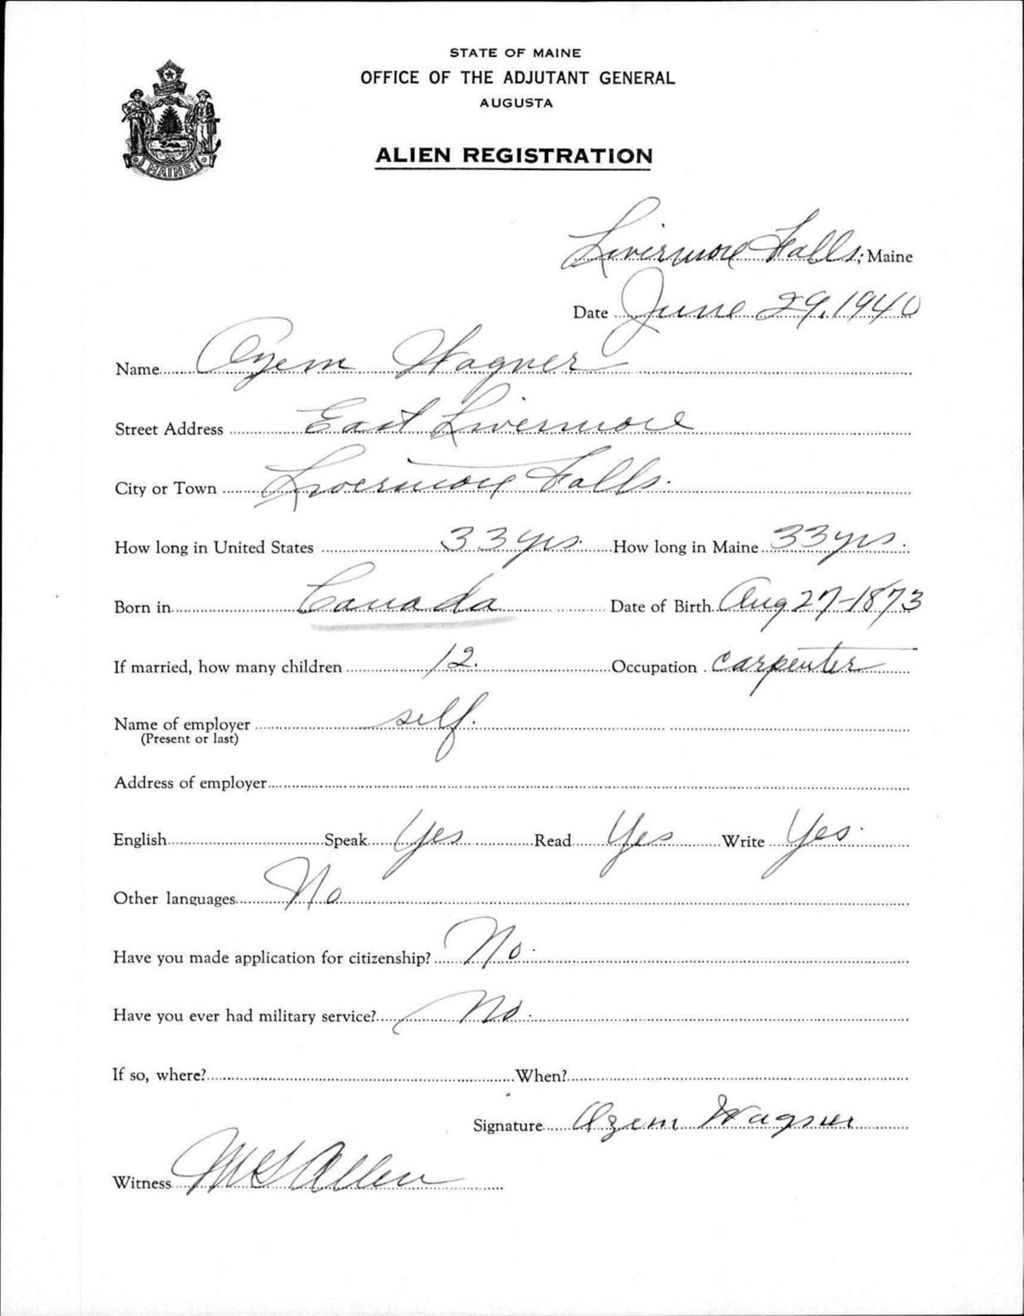 STATE OF MAINE
OFFICE OF THE ADJUTANT GENERAL
AUGUSTA
MAINE
ALIEN REGISTRATION
Livermore Falls, Maine
Date June 29, 1940
Name Ozem Wagner
Street Address East Livermore
City or Town Livermore Falls.
How long in United States 33 yrs. How long in Maine 33 yrs.
Born in Canada Date of Birth Aug 27-1873
If married, how many children 12. Occupation carpenter
Name of employer self.
(Present or last)
Address of employer
English Speak Yes Read Yes Write Yes.
Other languages No
Have you made application for citizenship? No.
Have you ever had military service? No.
If so, where? When?
Signature Ozem Wagner
Witness Allen